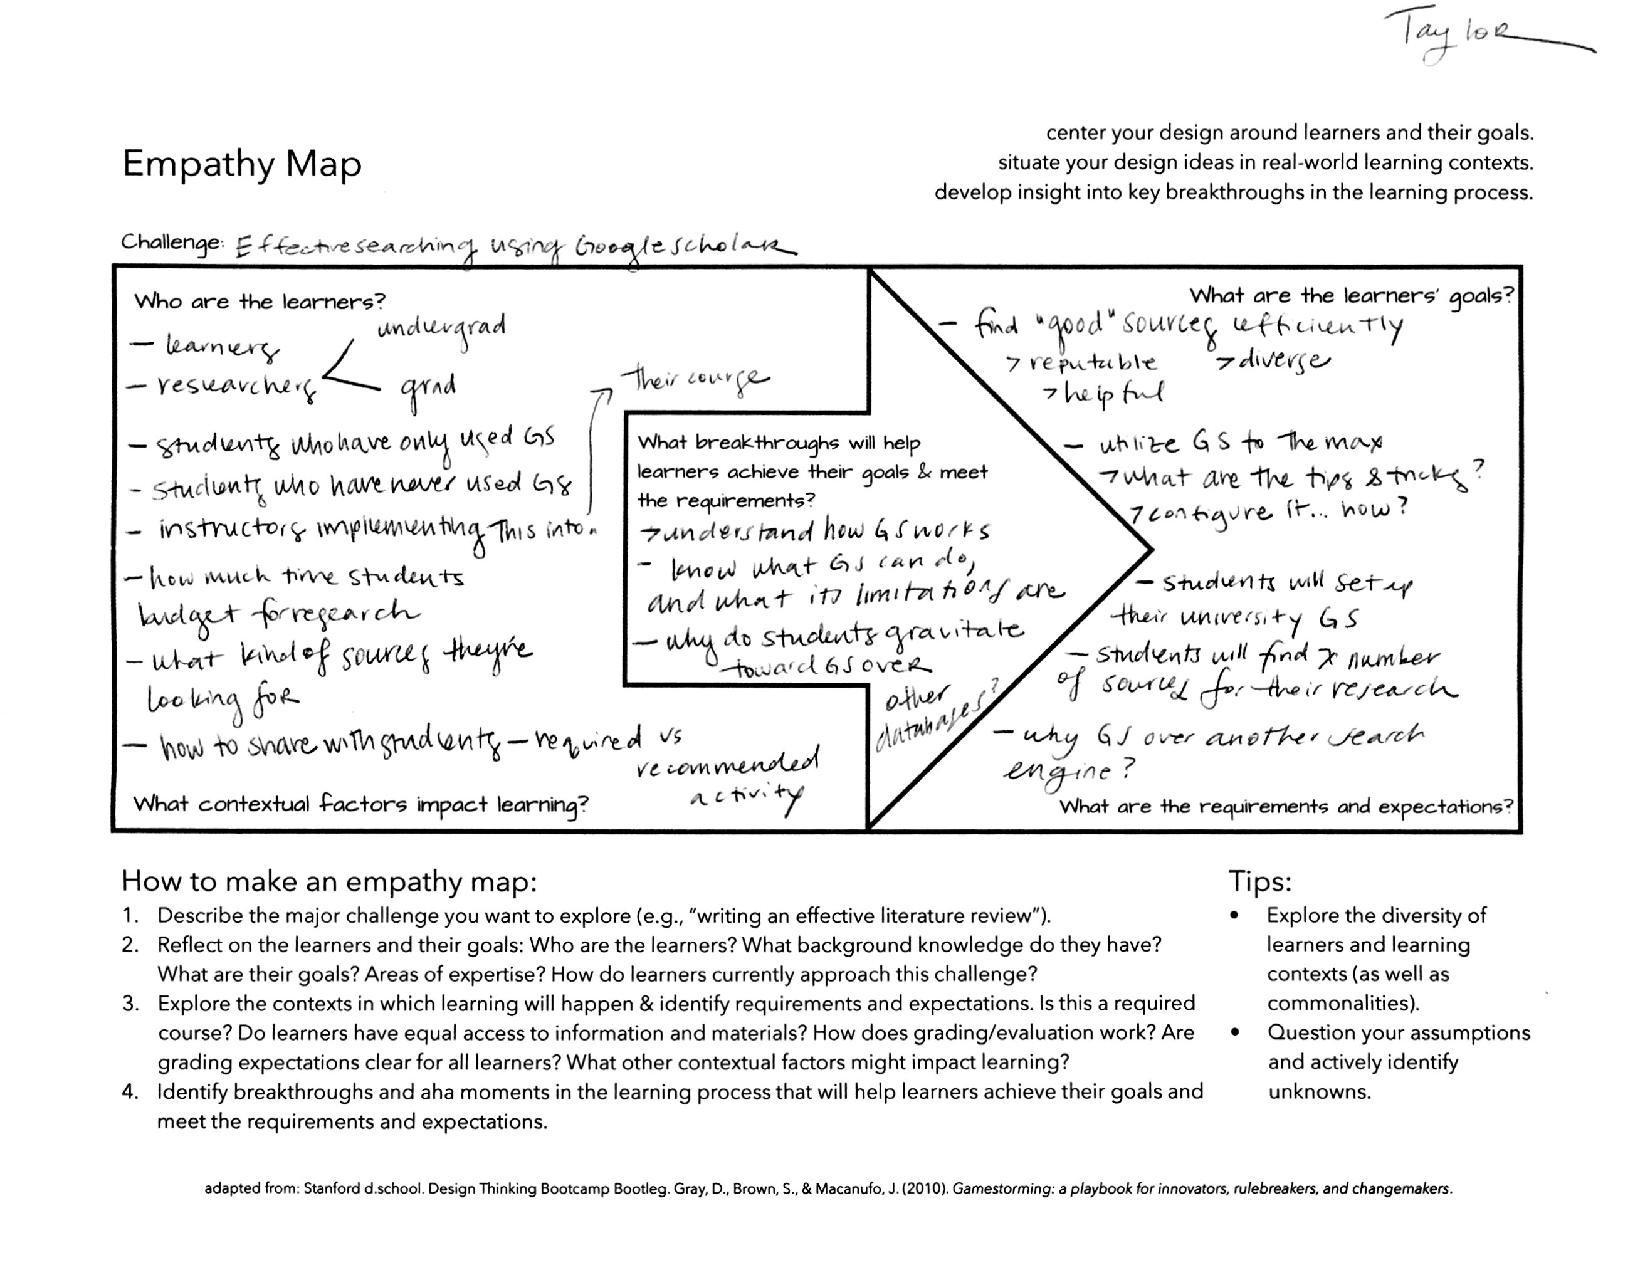 Taylor
center your design around learners and their goals.
situate your design ideas in real-world learning contexts.
develop insight into key breakthroughs in the learning process.
Empathy Map
Challenge: Effective searching using Google scholar
Who are the learners?
- learners
- researchers
undergrad
grad
- students who have only used GS
- students who have never used GS
- instructors implementing this into
their course
- how much time students
budget for research
- what kind of sources they're
looking for
- how to share with students - required vs
recommended
activity
What contextual factors impact learning?
What breakthroughs will help
learners achieve their goals & meet
the requirements?
→ understand how GS works
- know what GS can do,
and what its limitations are
- why do students gravitate
toward GS over
other
databases?
What are the learners' goals?
- find "good" sources efficiently
> reputable > diverse
> helpful
- utilize GS to the max
> what are the tips & tricks?
> configure it... how?
- students will set up
their university GS
- students will find x number
of sources for their research
- why GS over another search
engine?
What are the requirements and expectations?
How to make an empathy map:
1. Describe the major challenge you want to explore (e.g., "writing an effective literature review").
2. Reflect on the learners and their goals: Who are the learners? What background knowledge do they have?
What are their goals? Areas of expertise? How do learners currently approach this challenge?
3. Explore the contexts in which learning will happen & identify requirements and expectations. Is this a required
course? Do learners have equal access to information and materials? How does grading/evaluation work? Are
grading expectations clear for all learners? What other contextual factors might impact learning?
4. Identify breakthroughs and aha moments in the learning process that will help learners achieve their goals and
meet the requirements and expectations.
Tips:
• Explore the diversity of
learners and learning
contexts (as well as
commonalities).
• Question your assumptions
and actively identify
unknowns.
adapted from: Stanford d.school. Design Thinking Bootcamp Bootleg. Gray, D., Brown, S., & Macanufo, J. (2010). Gamestorming: a playbook for innovators, rulebreakers, and changemakers.